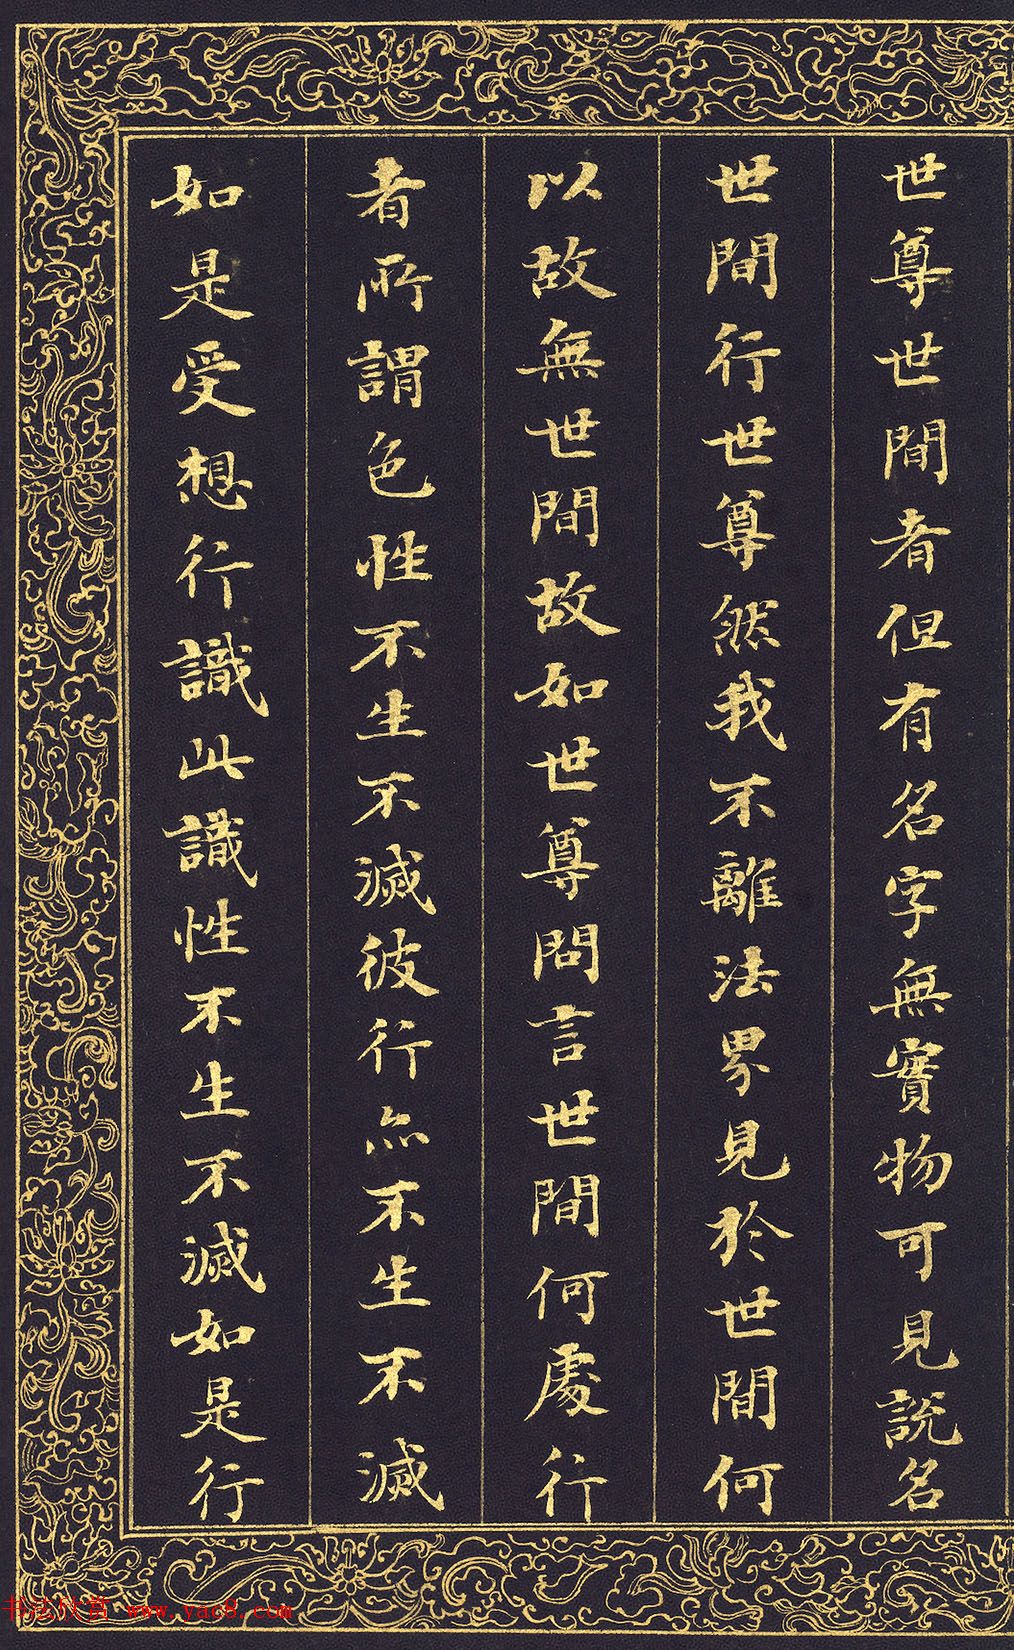 世尊世間者但有名字無實物可見説名
世間行世尊然我不離法界見於世間何
以故無世間故如世尊問言世間何處行
者所謂色性不生不滅彼行亦不生不滅
如是受想行識此識性不生不滅如是行
书法欣赏 www.yac8.com